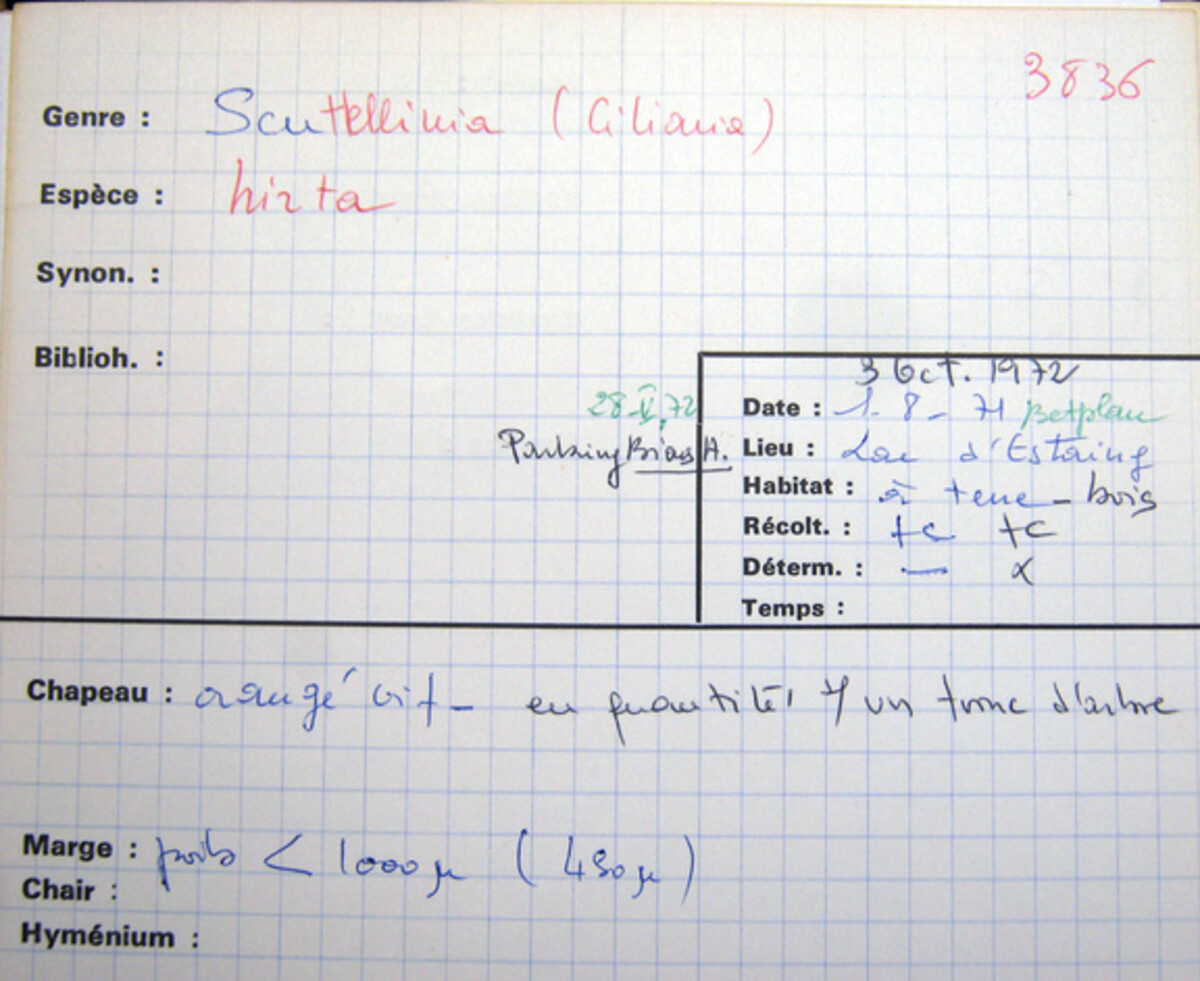 3836
Genre : Scutellinia (Ciliaria)
Espèce : hirta
Synon. :
Biblioh. :
3 Oct. 1972
28-V.72
Date : 1-8-71 Betplan
Parking Bias H.
Lieu : Lac d'Estaing
Habitat : à terre - bois
Récolt. : +c +c
Déterm. : — α
Temps :
Chapeau : orangé vif - en quantité, s/ un tronc d'arbre
Marge : poils < 1000 µ (450 µ)
Chair :
Hyménium :